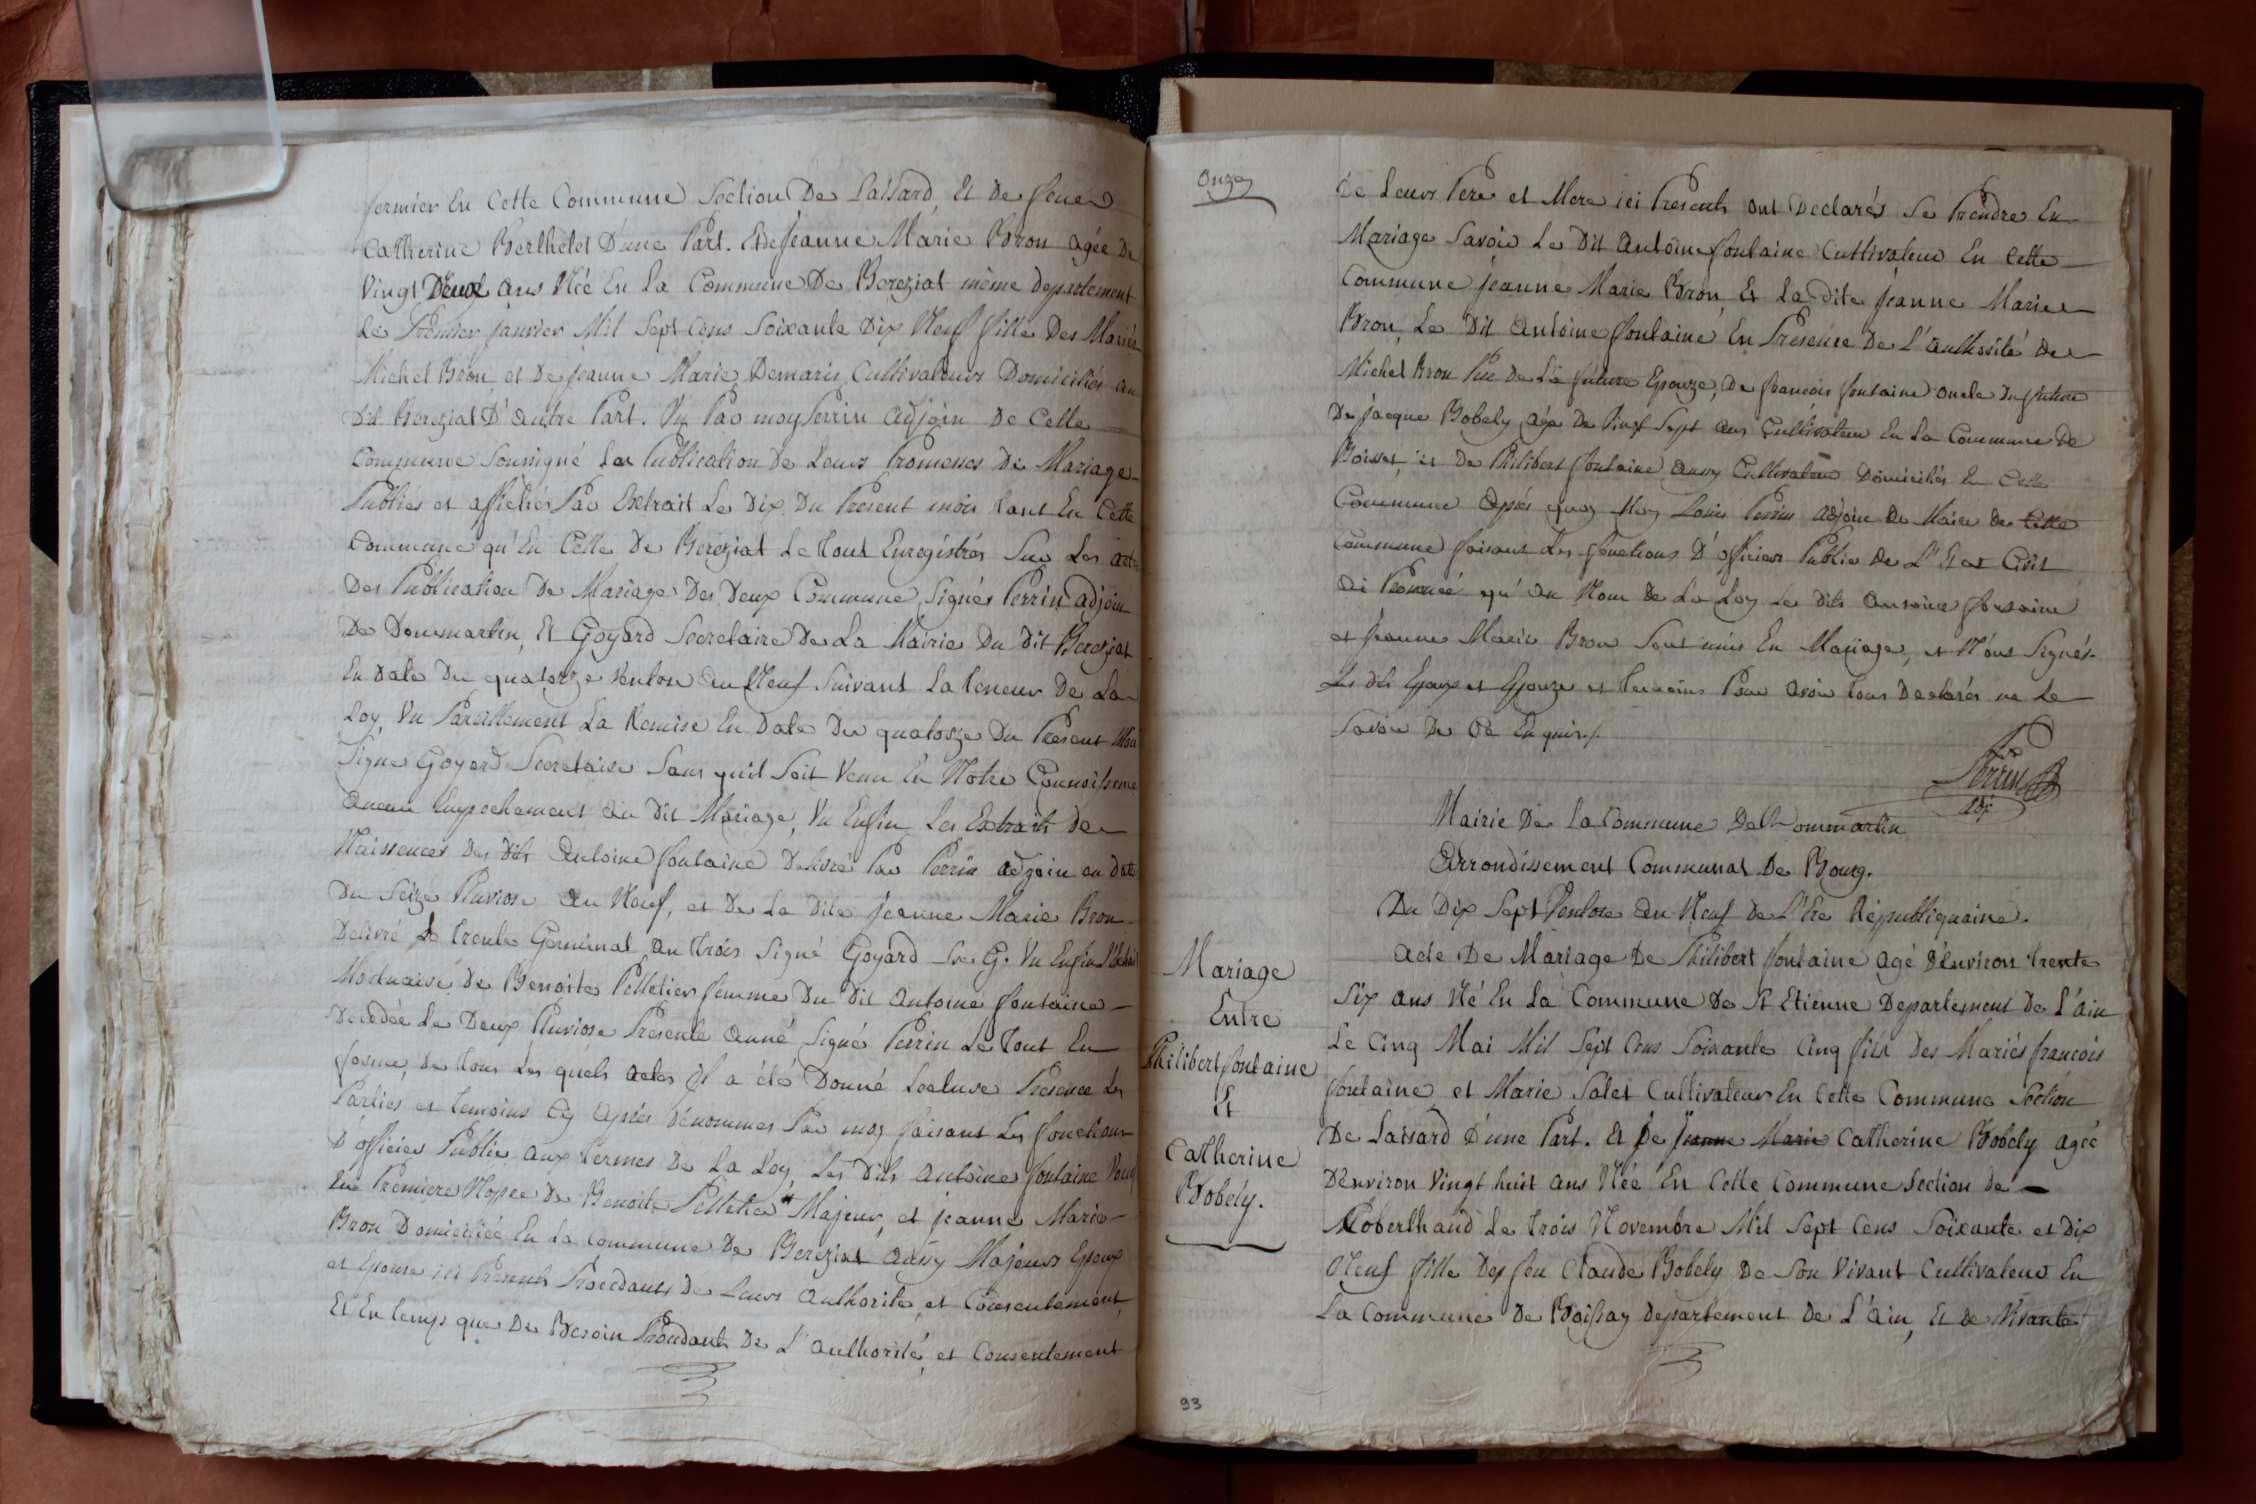 fermier En Cette Commune Section De Laissard, Et De feue
Catherine Berthelet D'une Part. Et de Jeanne Marie Bron agée De
Vingt Deux ans Née En La Commune De Bereziat même departement
Le Premier janvier Mil Sept Cens Soixante Dix Neuf fille Des Mariés
Michel Bron et De jeanne Marie Demaris Cultivateurs Domiciliés au
Dit Bereziat D'autre Part. Vu Par moy Perrin adjoin De Cette
Commune Soussigné Les Publication De Leurs Promesses De Mariage
Publiés et affichés Par Extrait Le Dix Du Present mois tant En Cette
Commune qu'En Celle De Bereziat Le tout Enregistrés Sur Les act
Des Publication De Mariage Des Deux Commune, Signés Perrin adjoin
De Dommartin, Et Goyard Secretaire De La Mairie Du Dit Bereziat
En Date Du quatorze Ventose an Neuf Suivant La teneur De La
Loy, Vu Pareillement La Remise En Date Du quatorze Du Present Mois
Signe Goyard Secretaire Sans qu'il Soit Venu En Notre Connoissence
aucun Empechement au Dit Mariage, Vu Enfin Les Extraits De
Naissences Des Dits Antoine fontaine Delivré Par Perrin adjoin en Date
Du Seize Pluviose an Neuf, et De La Dite Jeanne Marie Bron
Delivré Le trente Germinal an trois Signé Goyard Sre G. Vu Enfin
Mortuaire De Benoite Pelletier femme Du Dit Antoine fontaine
Decedée Le Deux Pluviose Presente anné Signé Perrin Le Tout En
forme, de tous Les quels actes Il a été Donné Lecture Presence Les
Parties et temoins Cy après Denommes Par moy faisant Les fonctions
D'officier Public aux termes De La Loy, Les Dits antoine fontaine Veuf
En Premiere Nopce De Benoite Pelletier Majeur, et jeanne Marie
Bron Domiciliée En La Commune De Bereziat aussy Majeurs Epoux
et Epouse ici Presents Procedants De Leurs authorité, et Consentement,
Et En temps que De Besoin Procedants De L'authorité, et Consentement
Onze
De Leurs Pere et Mere ici Presents ont Declarés Se Prendre En
Mariage Savoir Le Dit Antoine fontaine Cultivateur En Cette
Commune jeanne Marie Bron, Et La Dite jeanne Marie
Bron, Le Dit Antoine fontaine En Presence De L'authorité De
Michel Bron Pere De La future Epouze, De francois fontaine oncle Du future
De jacque Bobely agé De Vingt Sept ans Cultivateur En La Commune De
Boisset, et De Philibert fontaine aussy Cultivateur Domiciliés En Cette
Commune après quoy Moy Louis Perrin adjoin De Maire De Cette
Commune faisant Les fonctions D'officier Public De L'Etat Civil
ai Prononcé qu'au Nom De La Loy Les Dits antoine fontaine
et jeanne Marie Bron Sont unis En Mariage, et N'ont Signés
Les Dits Epoux et Epouze et temoins Pour avoir tous Declarés ne Le
Savoir De Ce Enquis./.
Perrin
adj
Mairie De La Commune De Dommartin
Arrondissement Communal De Bourg.
Du Dix Sept Ventose an Neuf De L'Ere Républiquaine.
Mariage
Entre
Philibert fontaine
Et
Catherine
Bobely.
Acte De Mariage De Philibert fontaine agé D'environ trente
Six ans Né En La Commune De St Etienne Departement De L'ain
Le Cinq Mai Mil Sept Cens Soixante Cinq fils Des Mariés francois
fontaine et Marie Salet Cultivateur En Cette Commune Section
De Laissard D'une Part. Et De Jeanne Marie Catherine Bobely agée
D'environ Vingt huit ans Née En Cette Commune Section De
Roberthaud Le trois Novembre Mil Sept Cens Soixante et Dix
Neuf fille Des feu Claude Bobely De Son Vivant Cultivateur En
La Commune De Boissay Departement De L'Ain, Et De Vivante
93